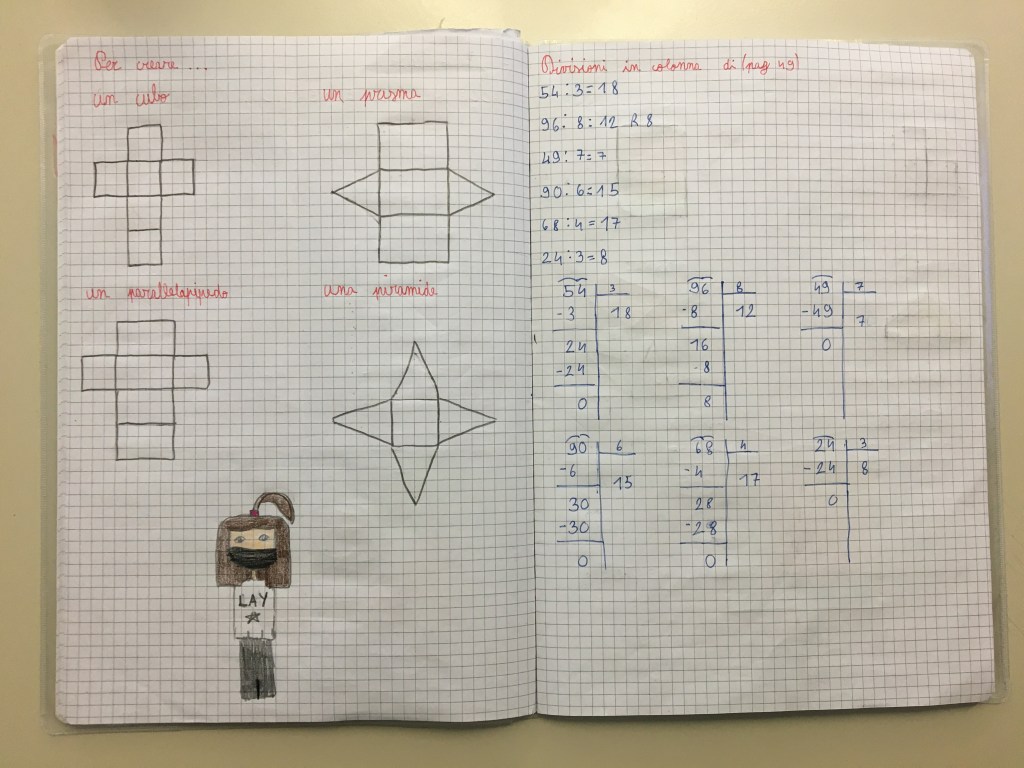 Per creare ...
un cubo
un prisma
un parallelapipedo
una piramide
LAY
Divisioni in colonna di (pag 49)
54:3=18
96:8:12 R8
49:7=7
90:6=15
68:4=17
24:3=8
54 3
-3 18
24
-24
0
96 8
-8 12
16
-8
8
49 7
-49 7
0
90 6
-6 15
30
-30
0
68 4
-4 17
28
-28
0
24 3
-24 8
0